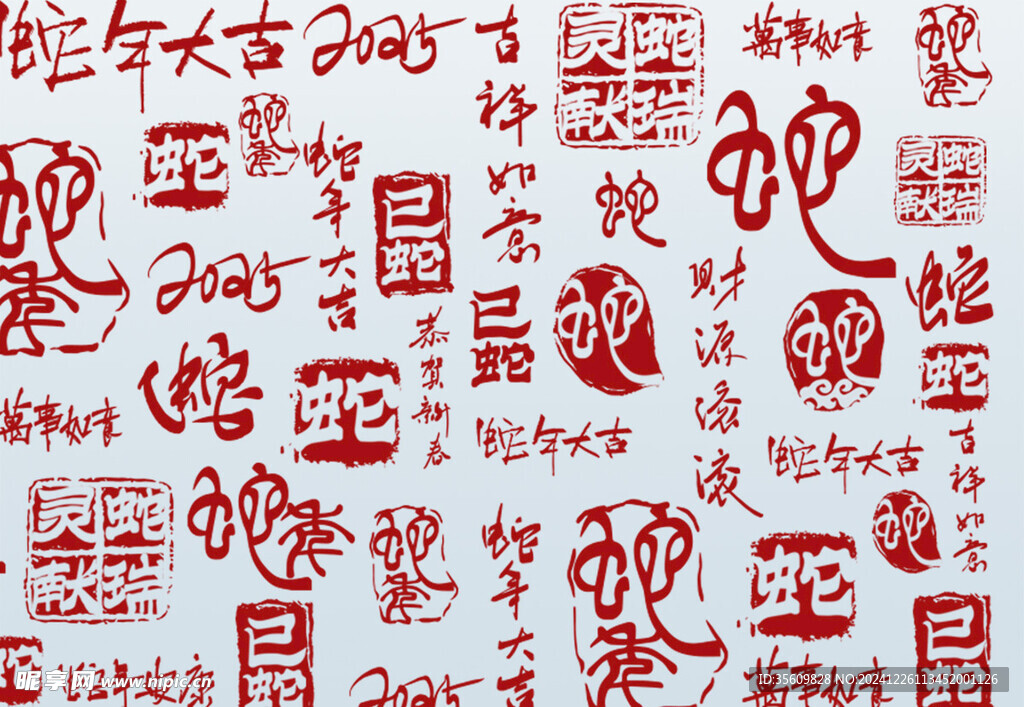 蛇年大吉
2025
吉祥如意
灵蛇献瑞
萬事如意
蛇年
蛇年
蛇
蛇年
蛇年大吉
巳蛇
蛇
蛇
灵蛇献瑞
2025
财源滚滚
蛇
巳蛇
蛇
蛇
蛇
恭贺新春
蛇
蛇
蛇
萬事如意
蛇年大吉
蛇年大吉
吉祥如意
灵蛇献瑞
蛇年
蛇年
蛇年大吉
蛇年
蛇
蛇
巳蛇
巳蛇
2025
萬事如意
昵享网 www.nipic.cn
ID:35609828 NO:20241226113452001126